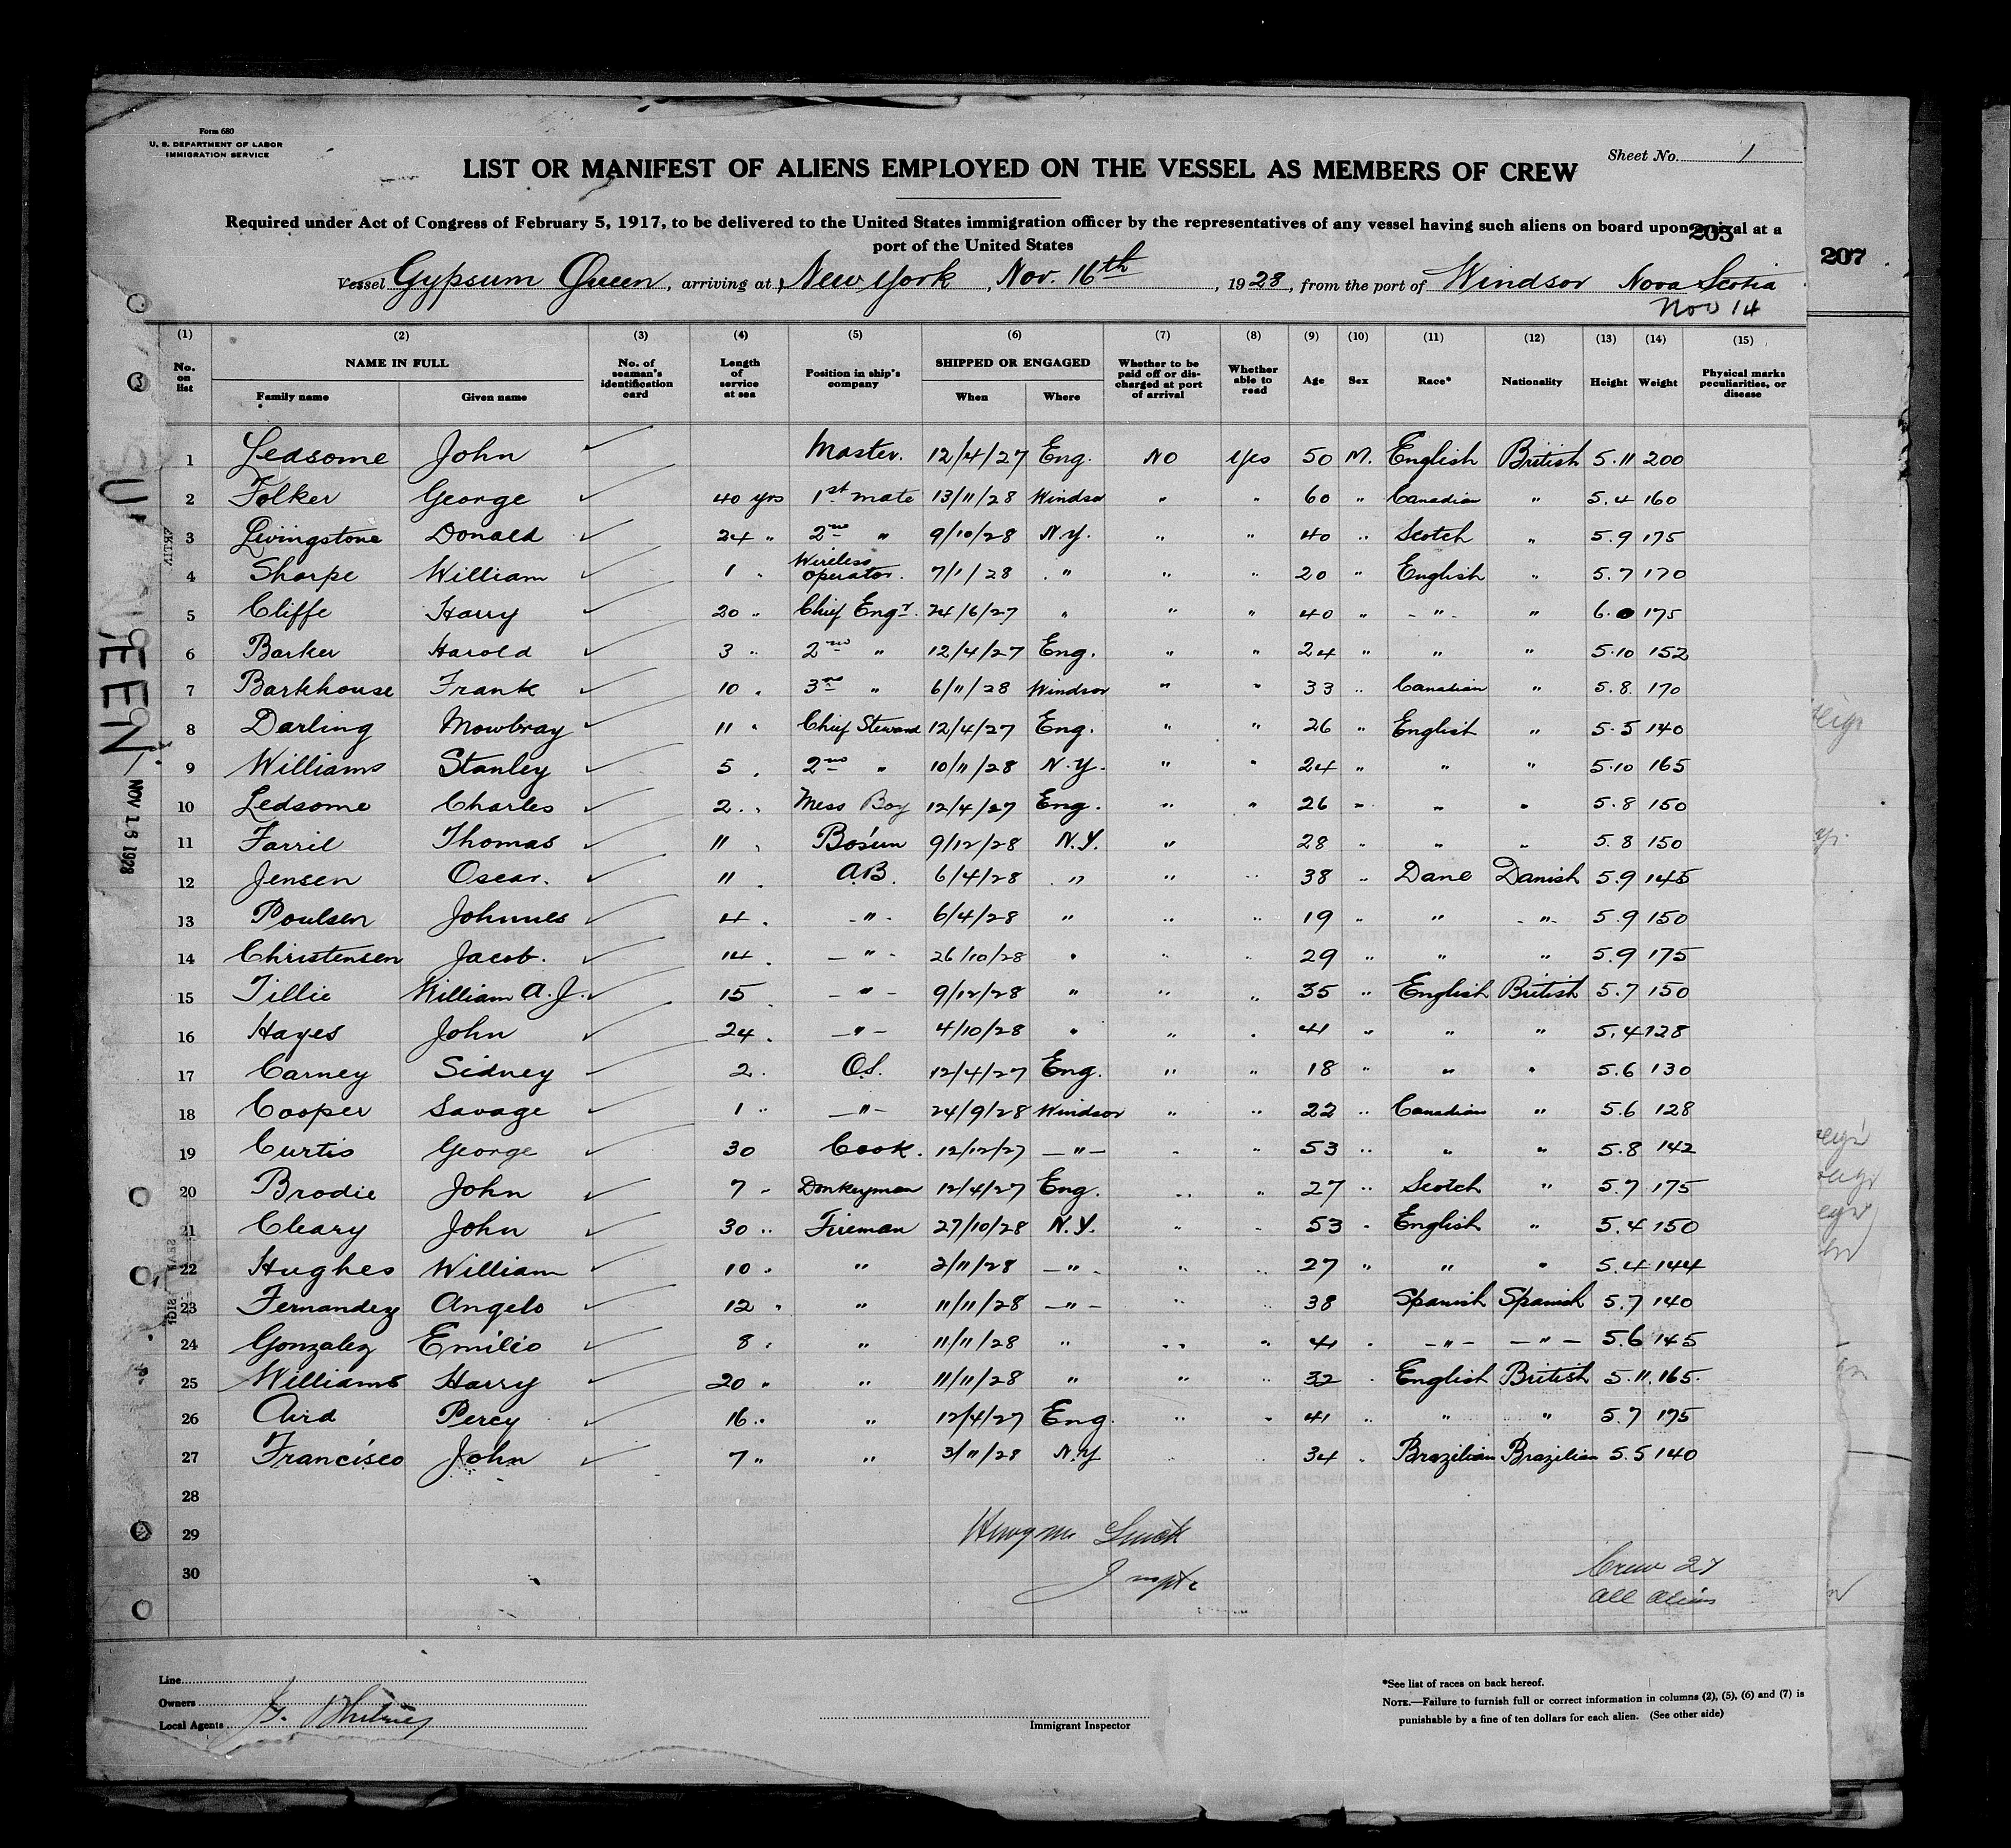 Form 680
U. S. DEPARTMENT OF LABOR
IMMIGRATION SERVICE
Sheet No. 1
LIST OR MANIFEST OF ALIENS EMPLOYED ON THE VESSEL AS MEMBERS OF CREW
Required under Act of Congress of February 5, 1917, to be delivered to the United States immigration officer by the representatives of any vessel having such aliens on board upon arrival at a
port of the United States
205
207
Vessel Gypsum Queen, arriving at New York, Nov. 16th, 1928, from the port of Windsor Nova Scotia
Nov 14
(1) (2) (3) (4) (5) (6) (7) (8) (9) (10) (11) (12) (13) (14) (15)
No. on list NAME IN FULL Family name Given name No. of seaman's identification card Length of service at sea Position in ship's company SHIPPED OR ENGAGED When Where Whether to be paid off or discharged at port of arrival Whether able to read Age Sex Race* Nationality Height Weight Physical marks peculiarities, or disease
1 Ledsome John ✓ Master. 12/4/27 Eng. No yes 50 M. English British 5.11 200
2 Folker George ✓ 40 yrs 1st mate 13/11/28 Windsor " " 60 " Canadian " 5.4 160
3 Livingstone Donald ✓ 24 " 2nd " 9/10/28 N.Y. " " 40 " Scotch " 5.9 175
4 Sharpe William ✓ 1 " Wireless operator. 7/1/28 " " " 20 " English " 5.7 170
5 Cliffe Harry ✓ 20 " Chief Engr. 24/6/27 " " " 40 " - " - " 6.0 175
6 Barker Harold ✓ 3 " 2nd " 12/4/27 Eng. " " 24 " " " 5.10 152
7 Barkhouse Frank ✓ 10 " 3rd " 6/11/28 Windsor " " 33 " Canadian " 5.8. 170
8 Darling Mowbray ✓ 11 " Chief Steward 12/4/27 Eng. " " 26 " English " 5.5 140
9 Williams Stanley ✓ 5 " 2nd " 10/11/28 N.Y. " " 24 " " " 5.10 165
10 Ledsome Charles ✓ 2 " Mess Boy 12/4/27 Eng. " " 26 " " " 5.8 150
11 Farril Thomas ✓ 11 " Bo'sun 9/12/28 N.Y. " 28 " " " 5.8 150
12 Jensen Oscar. ✓ 11 " A.B. 6/4/28 " " " 38 " Dane Danish 5.9 145
13 Poulsen Johnnes ✓ 4 " - " - 6/4/28 " " " 19 " " - " - 5.9 150
14 Christensen Jacob. ✓ 14 " - " - 26/10/28 " " " 29 " " " 5.9 175
15 Tillie William A. J. ✓ 15 - " - 9/12/28 " " " 35 " English British 5.7 150
16 Hayes John ✓ 24 " - " - 4/10/28 " " " 41 " " " 5.4 128
17 Carney Sidney ✓ 2 " O.S. 12/4/27 Eng. " " 18 " " " 5.6 130
18 Cooper Savage ✓ 1 " - " - 24/9/28 Windsor " " 22 " Canadian " 5.6 128
19 Curtis George ✓ 30 Cook. 12/12/27 - " - " " 53 " " " 5.8 142
20 Brodie John ✓ 7 " Donkeyman 12/4/27 Eng. " " 27 " Scotch " 5.7 175
21 Cleary John ✓ 30 " Fireman 27/10/28 N.Y. " " 53 " English " 5.4 150
22 Hughes William ✓ 10 " " 2/11/28 - " - " " 27 " " " 5.4 144
23 Fernandez Angelo ✓ 12 " " 11/11/28 - " - " " 38 Spanish Spanish 5.7 140
24 Gonzalez Emilio ✓ 8 " " 11/11/28 " " " 41 " - " - - " - 5.6 145
25 Williams Harry ✓ 20 " " 11/11/28 " " " 32 " English British 5.11. 165.
26 Aird Percy ✓ 16 " " 12/4/27 Eng. " " 41 " " " 5.7 175
27 Francisco John ✓ 7 " " 3/11/28 N.Y " " 34 " Brazilian Brazilian 5.5 140
28
29
30
Crew 27
All Aliens
NOV 16 1928
Line
Owners
Local Agents
J. Whitney
Immigrant Inspector
*See list of races on back hereof.
NOTE.—Failure to furnish full or correct information in columns (2), (5), (6) and (7) is
punishable by a fine of ten dollars for each alien. (See other side)